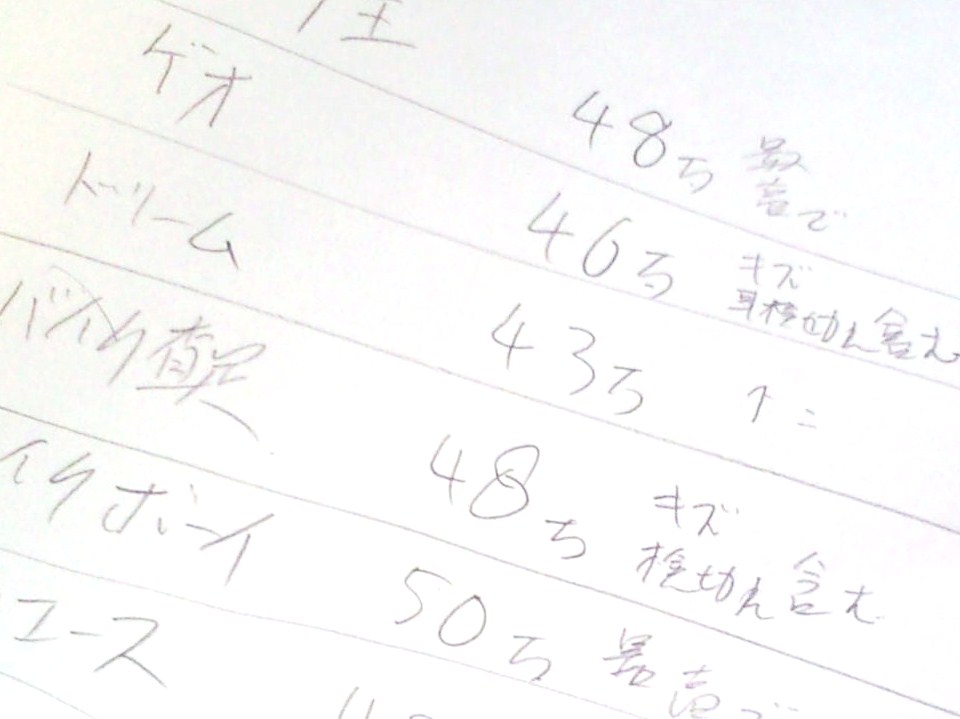 王
ゲオ 48万 最高で
ドリーム 46万 キズ 車検切れ含む
バイク査定 43万 ↑=
イクボーイ 48万 キズ 検切れ含む
ユース 50万 最高で